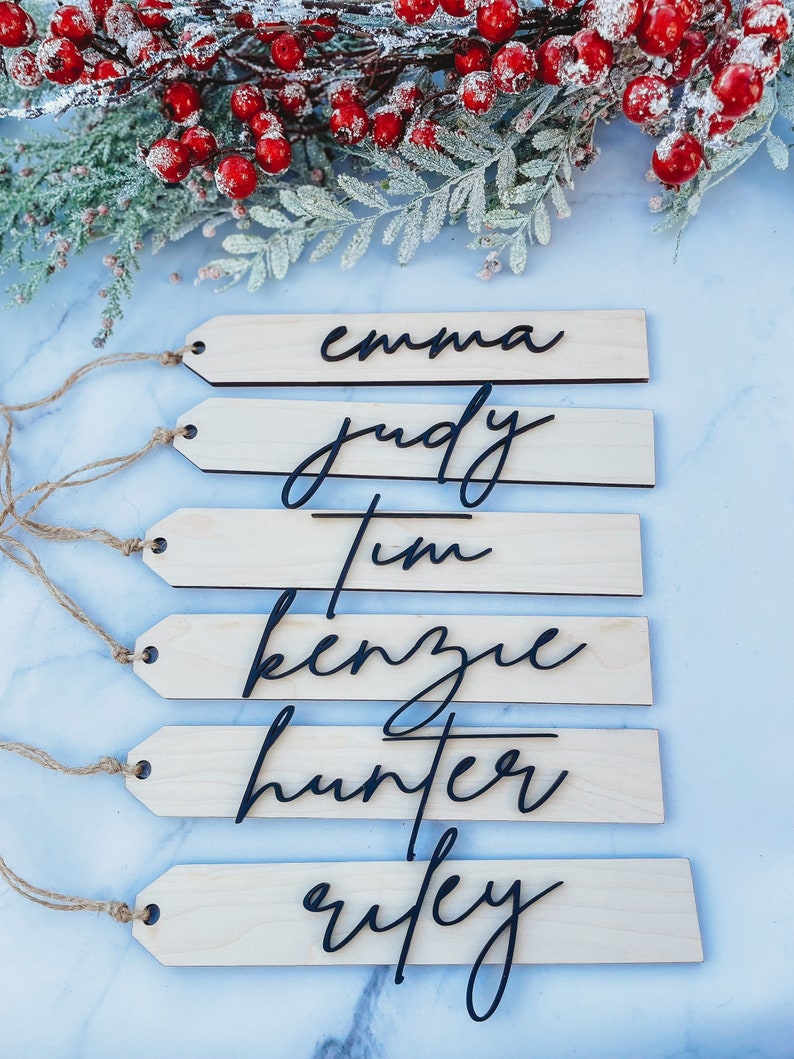 emma
judy
Tim
kenzie
hunter
riley